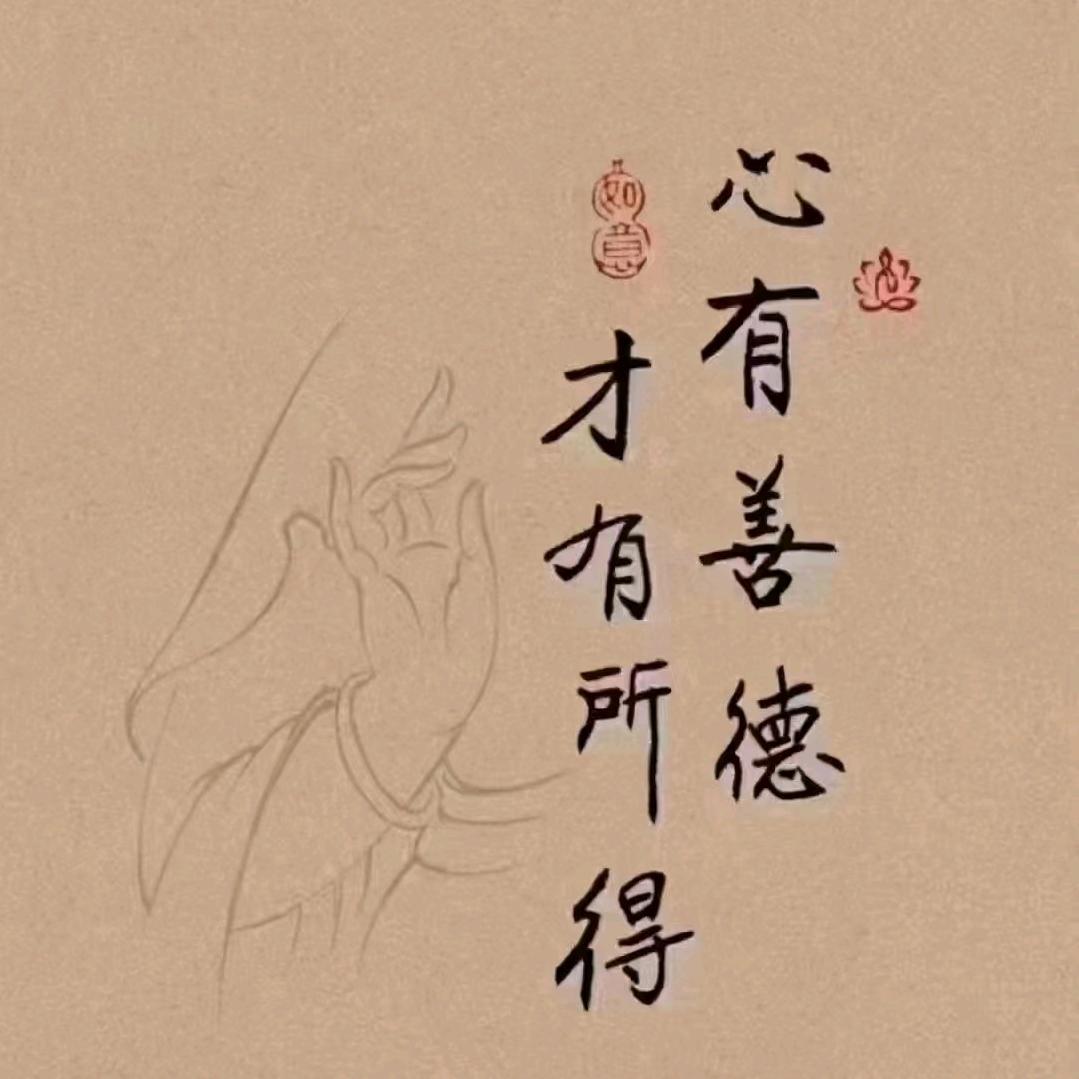 心有善德
如意
才有所得